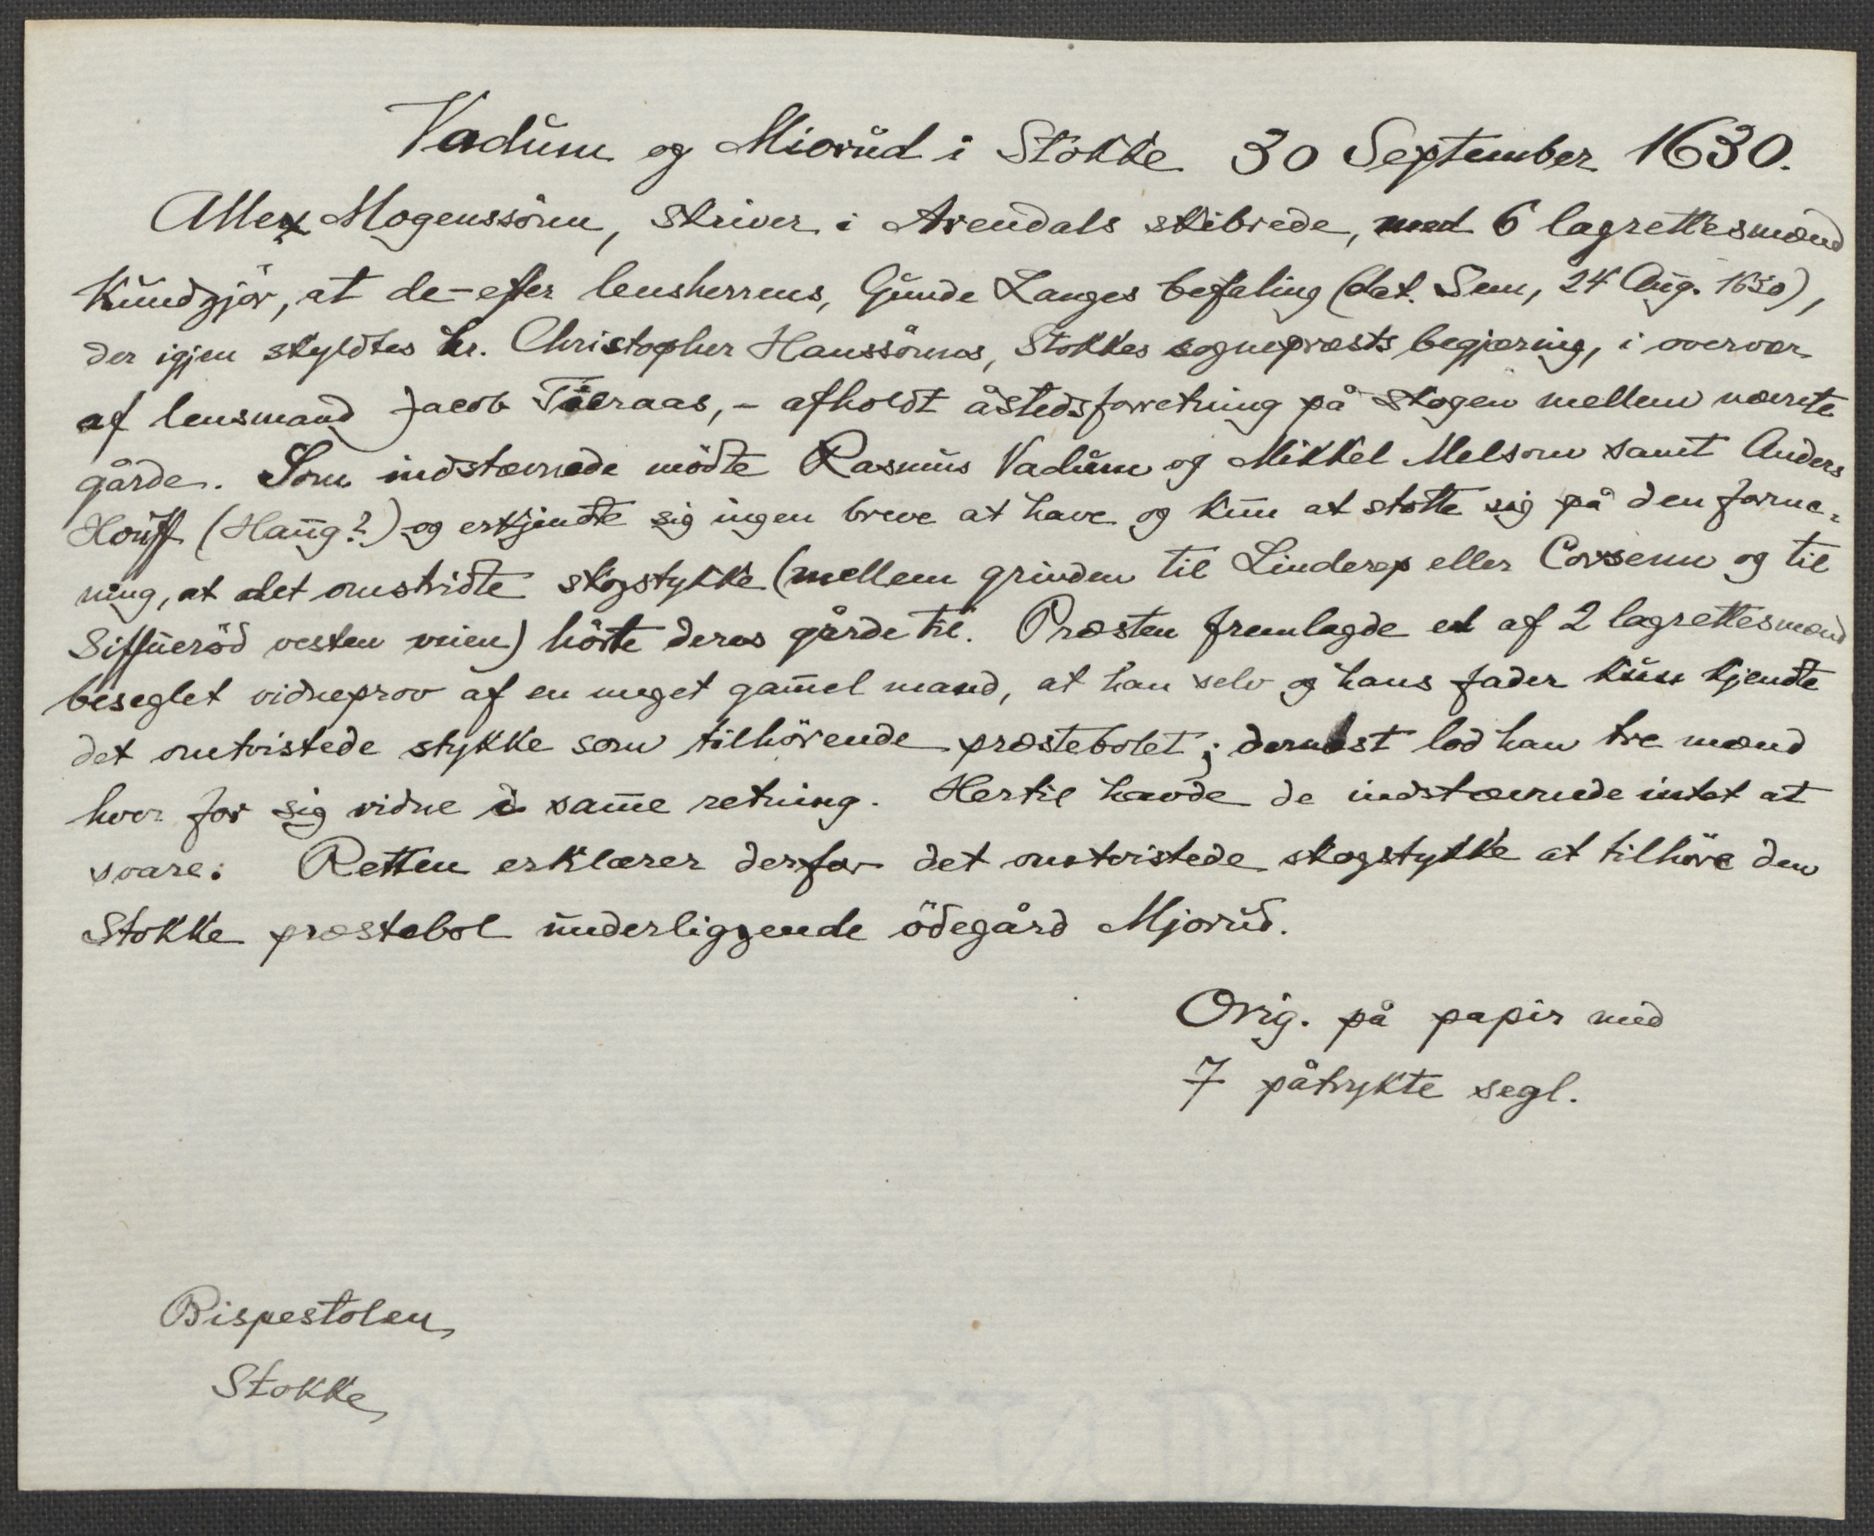 Vadum og Miorud i Stokke 30 September 1630.
Allex Mogenssönn, skriver i Arendals skibrede, med 6 lagrettesmænd
kundgjör, at de - efter lensherrens, Gunde Langes befaling (dat. Sem, 24 Aug. 1630),
der igjen skyldtes hr. Christopher Hanssönns, Stokkes sogneprests begjæring, i overvær
af lensmand Jacob Tåeraas, - afholdt åstedsforretning på skogen mellem nævnte
gårde. Som indstævnede mödte Rasmus Vadum og Mikkel Melsom samt Anders
Houff (Haug?) og erkjendte sig ingen breve at have og kun at støtte sig på den forme-
ning, at det omstridte skogstykke (mellem grinden til Linderep eller Corsenn og til
Siffueröd vesten veien) hörte deres gårde til. Præsten fremlagde et af 2 lagrettesmænd
beseglet vidneprov af en meget gam̅el mand, at han selv og hans fader kun kjendte
det omtvistede stykke som tilhörende præstebolet; dernæst lod han tre mænd
hver for sig vidne i sam̅e retning. Hertil havde de indstævnede intet at
svare: Retten erklærer derfor det omtvistede skogstykke at tilhöre den
Stokke præstebol underliggende ödegård Mjorud.
Orig. på papir med
7 påtrykte segl.
Bispestolen,
Stokke,